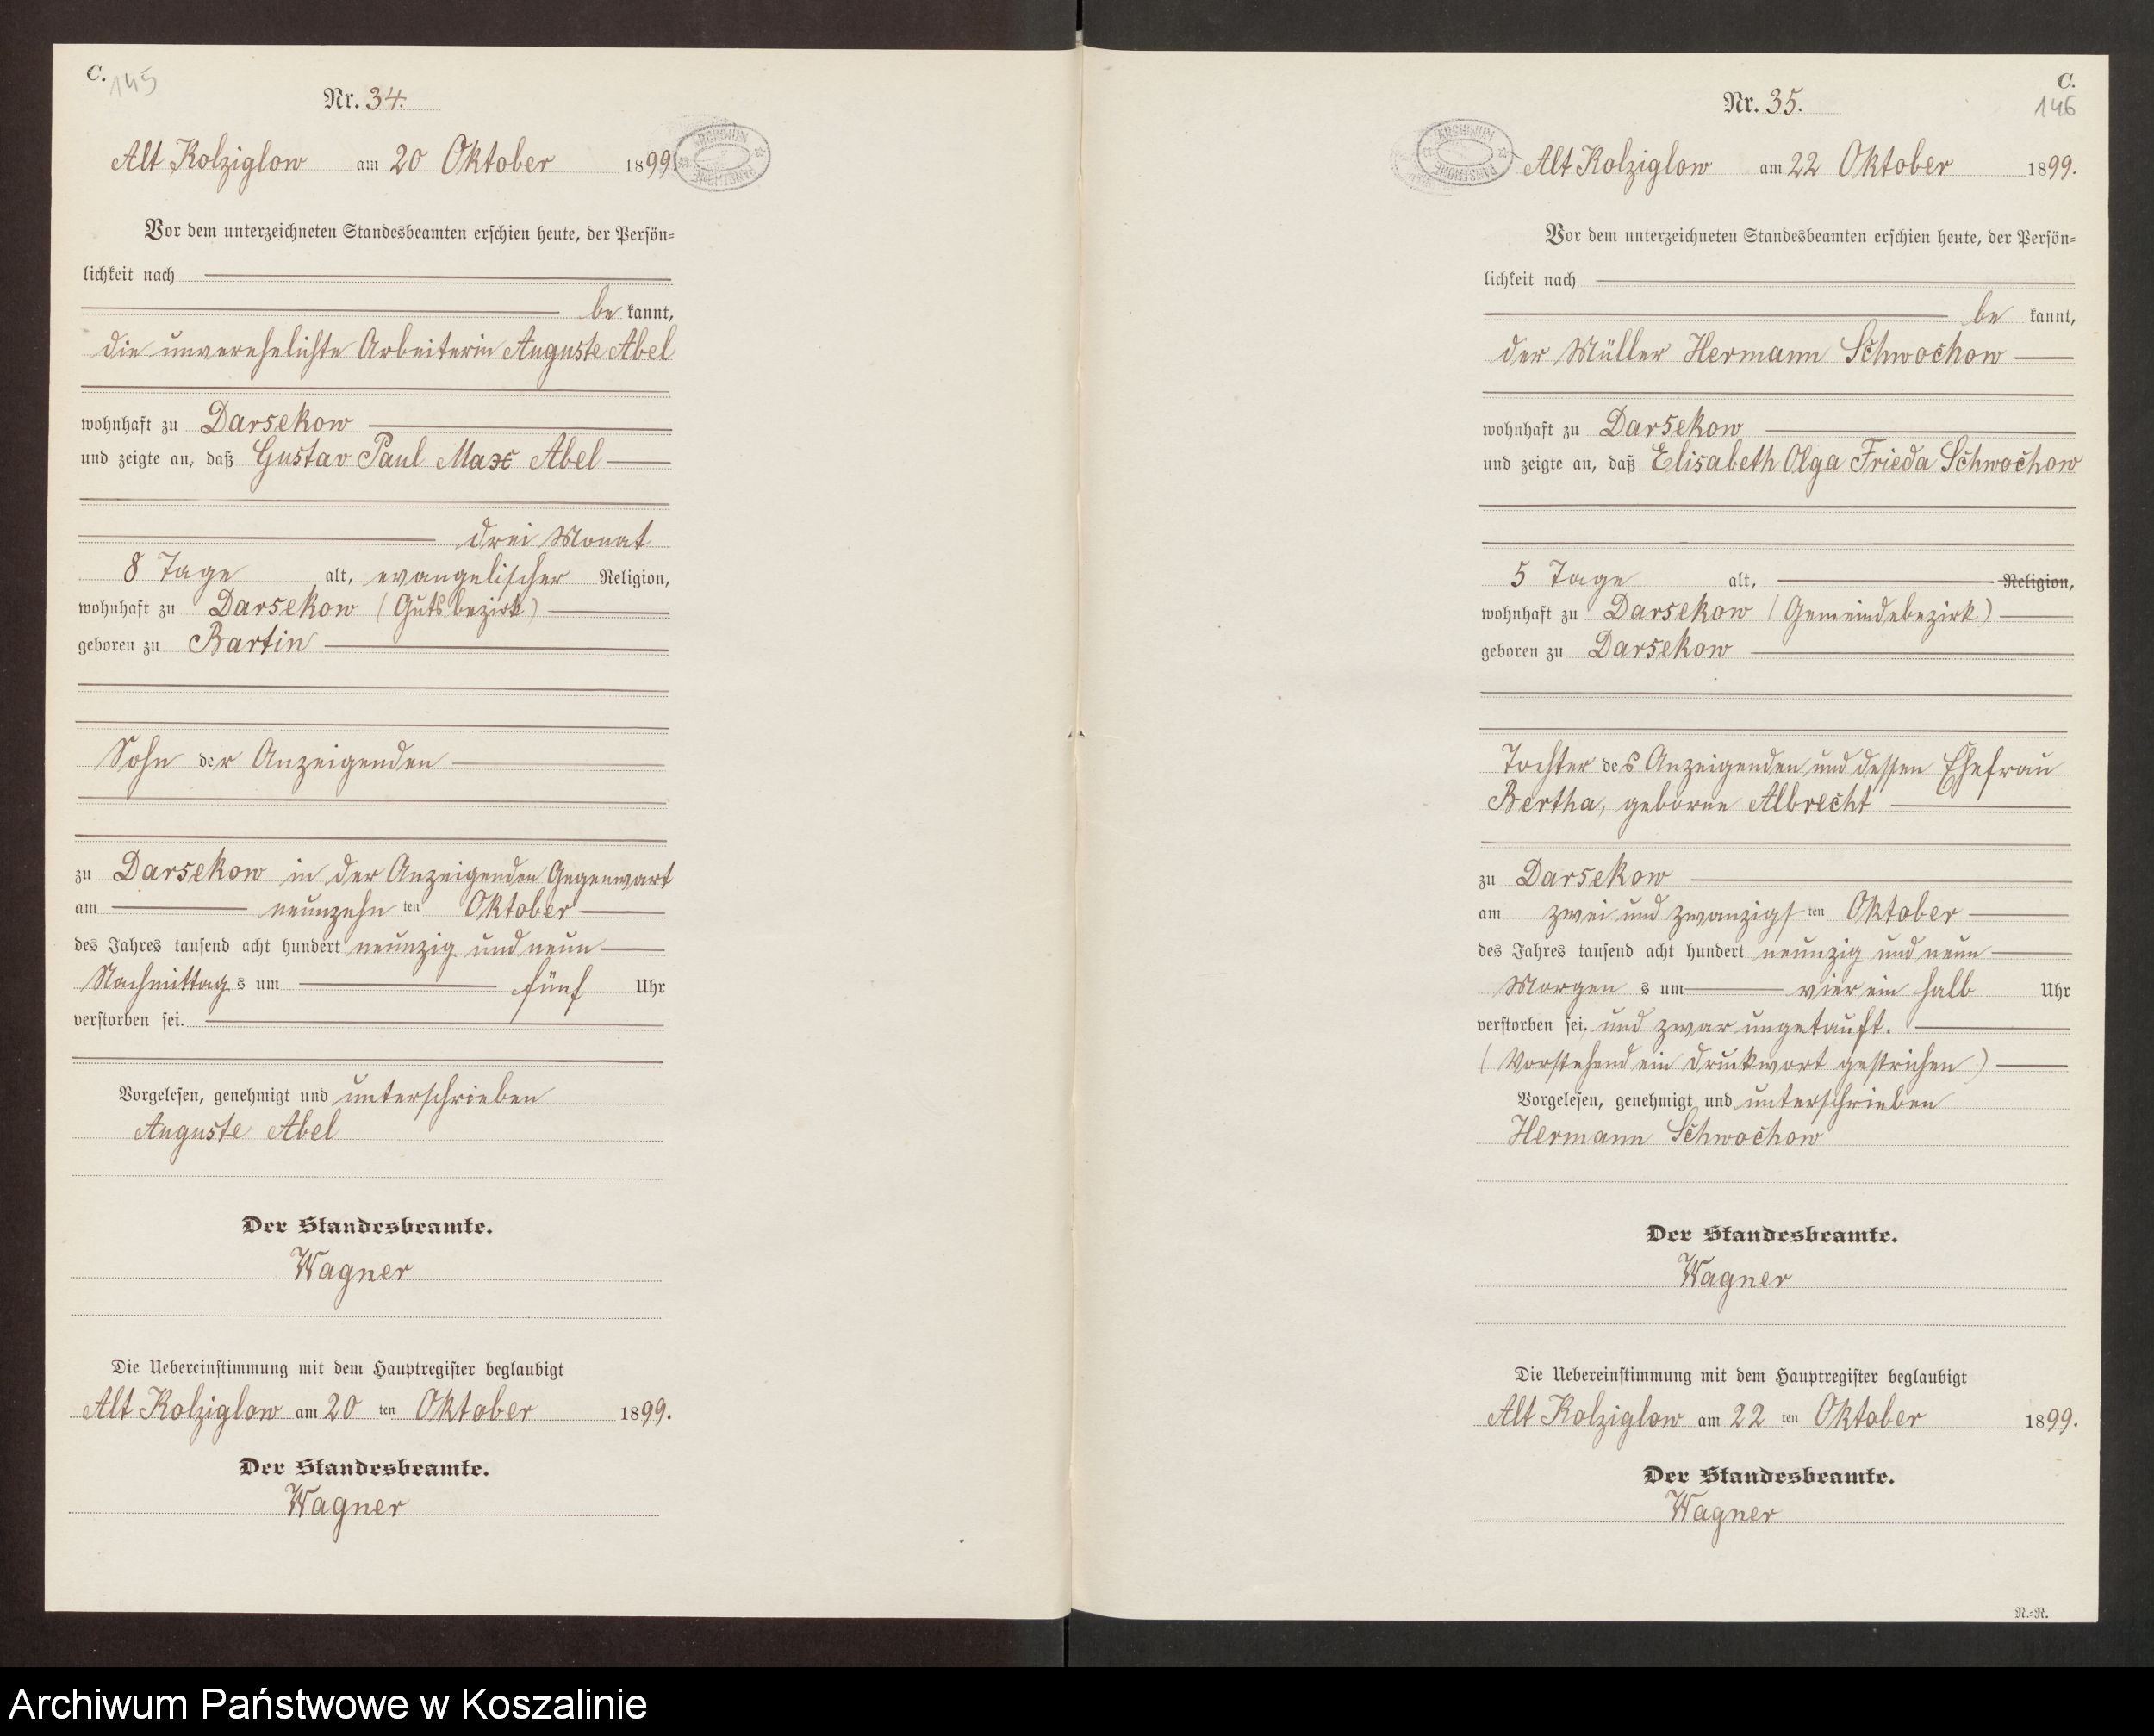 C.
145
Nr. 34.
Alt Kolziglow am 20 Oktober 1899.
ARCHIWUM PAŃSTWOWE
Vor dem unterzeichneten Standesbeamten erschien heute, der Persön-
lichkeit nach
be kannt,
die unverehelichte Arbeiterin Auguste Abel
wohnhaft zu Darsekow
und zeigte an, daß Gustav Paul Max Abel
drei Monat
8 Tage alt, evangelischer Religion,
wohnhaft zu Darsekow (Gutsbezirk)
geboren zu Bartin
Sohn der Anzeigenden
zu Darsekow in der Anzeigenden Gegenwart
am neunzehn ten Oktober
des Jahres tausend acht hundert neunzig und neun
Nachmittag s um fünf Uhr
verstorben sei.
Vorgelesen, genehmigt und unterschrieben
Auguste Abel
Der Standesbeamte.
Wagner
Die Uebereinstimmung mit dem Hauptregister beglaubigt
Alt Kolziglow am 20 ten Oktober 1899.
Der Standesbeamte.
Wagner
C.
146
Nr. 35.
ARCHIWUM PAŃSTWOWE
Alt Kolziglow am 22 Oktober 1899.
Vor dem unterzeichneten Standesbeamten erschien heute, der Persön-
lichkeit nach
be kannt,
der Müller Hermann Schwochow
wohnhaft zu Darsekow
und zeigte an, daß Elisabeth Olga Frieda Schwochow
5 Tage alt, Religion,
wohnhaft zu Darsekow (Gemeindebezirk)
geboren zu Darsekow
Tochter des Anzeigenden und dessen Ehefrau
Bertha, geborne Albrecht
zu Darsekow
am zwei und zwanzigs ten Oktober
des Jahres tausend acht hundert neunzig und neun
Morgen s um vier ein halb Uhr
verstorben sei, und zwar ungetauft.
(Vorstehend ein Druckwort gestrichen)
Vorgelesen, genehmigt und unterschrieben
Hermann Schwochow
Der Standesbeamte.
Wagner
Die Uebereinstimmung mit dem Hauptregister beglaubigt
Alt Kolziglow am 22 ten Oktober 1899.
Der Standesbeamte.
Wagner
N.-N.
Archiwum Państwowe w Koszalinie